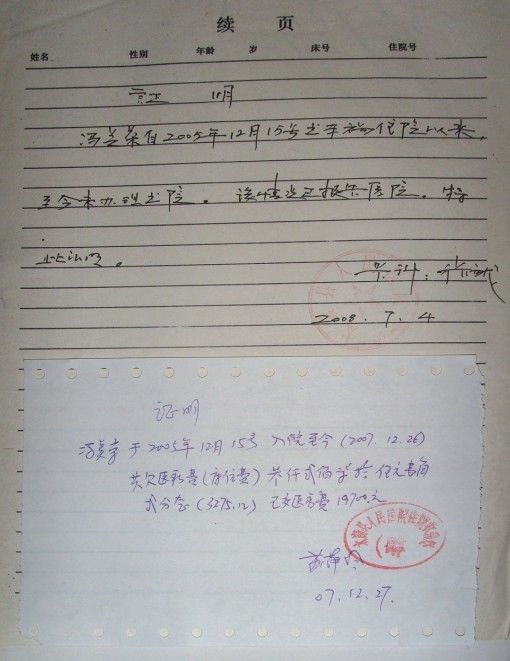 续 页
姓名 性别 年龄 岁 床号 住院号
证 明
冯兰荣自2005年12月15号出车祸住院以来,
至今未办理出院。该情况已报告医院。特
此证明。
2008.7.4
证明
于2005年12月15号入院至今(2007.12.26)
共欠医药费(床位费)叁仟贰佰
贰分整(3275.12)已交医药费19700元
07.12.27.